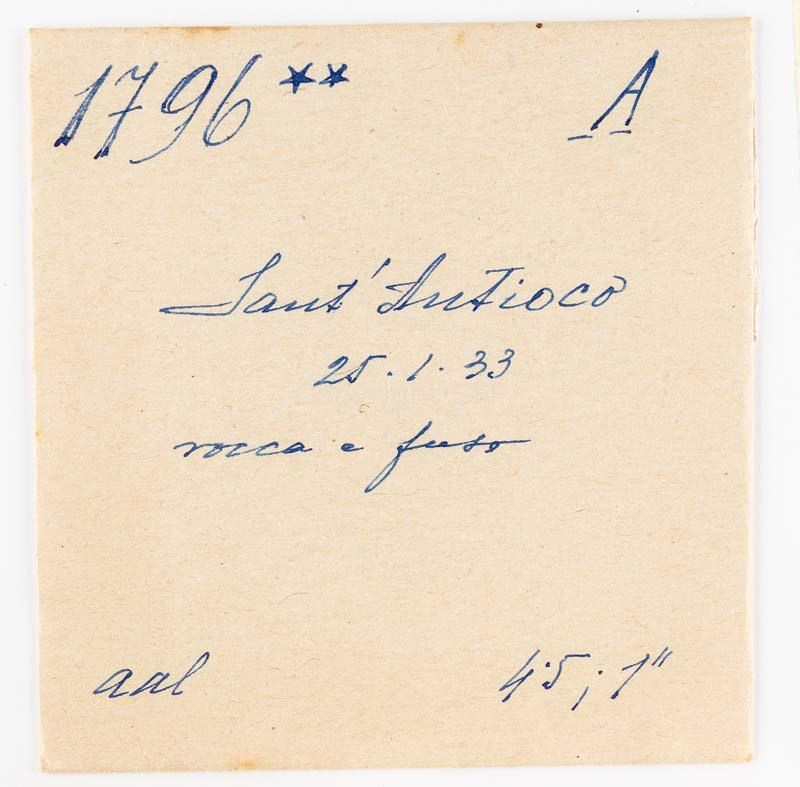 1796 ** A
Sant' Antioco
25.1.33
rocca e fuso
aal 4.5; 1"